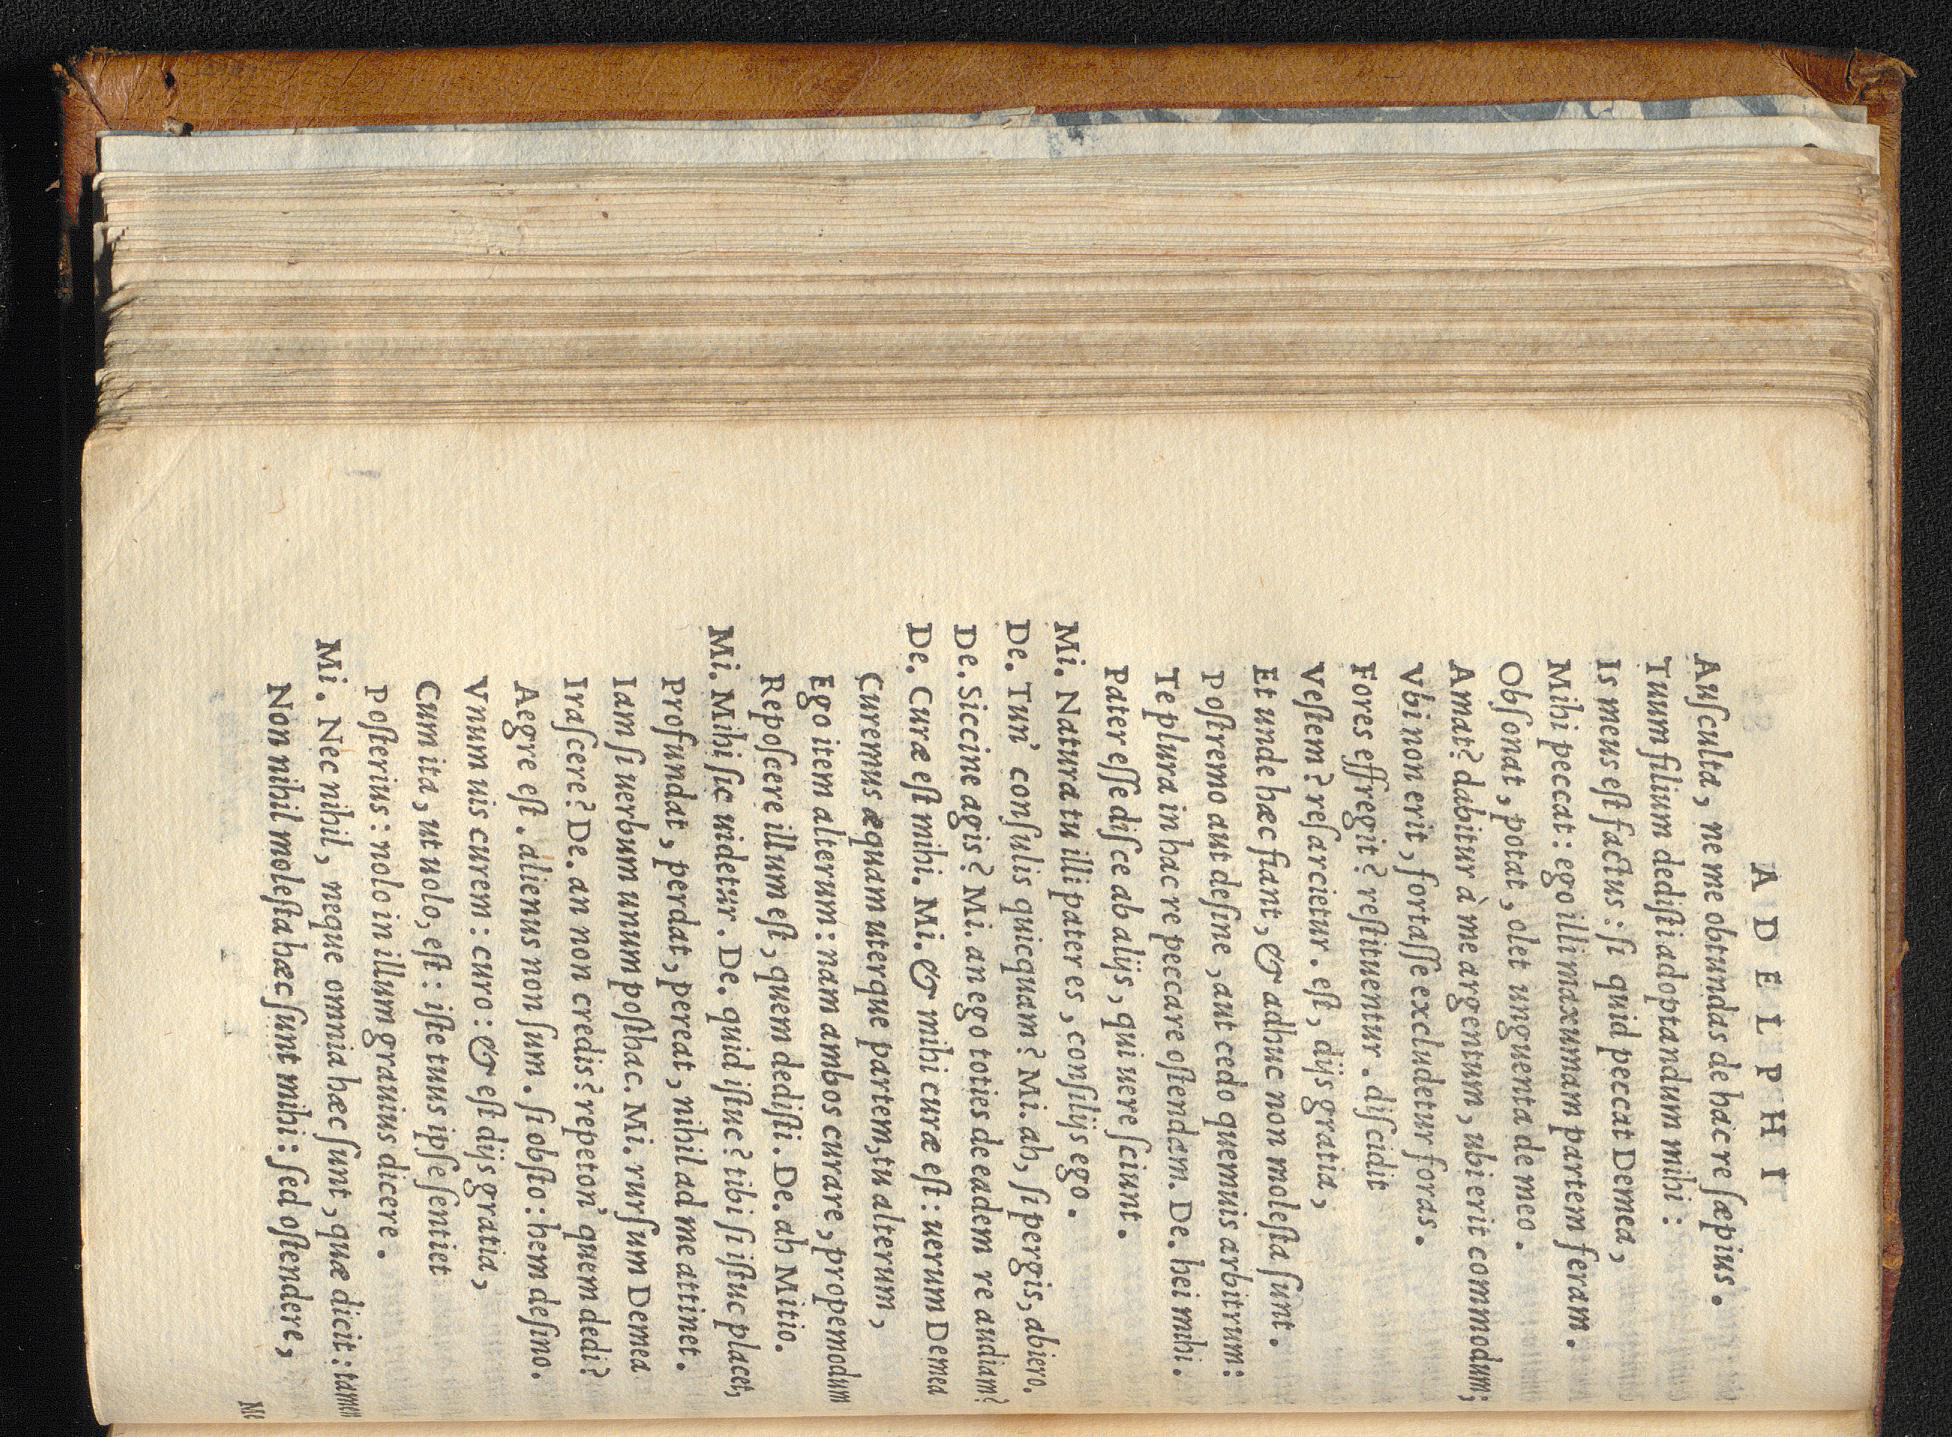 A D E L P H I
Auſculta, ne me obtundas de hac re ſæpius.
Tuum filium dediſti adoptandum mihi:
Is meus eſt factus: ſi quid peccat Demea,
Mihi peccat: ego illi maxumam partem feram.
Obſonat, potat, olet unguenta de meo.
Amat? dabitur à me argentum, ubi erit commodum;
Vbi non erit, fortaſſe excludetur foras.
Fores effregit? reſtituentur. diſcidit
Veſtem? reſarcietur. eſt, dijs gratia,
Et unde hæc fiant, & adhuc non moleſta ſunt.
Poſtremo aut deſine, aut cedo quemuis arbitrum:
Te plura in hac re peccare oſtendam. De. hei mihi.
Pater eſſe diſce ab alijs, qui uere ſciunt.
Mi. Natura tu illi pater es, conſilijs ego.
De. Tun' conſulis quicquam? Mi. ah, ſi pergis, abiero.
De. Siccine agis? Mi. an ego toties de eadem re audiam?
De. Curæ eſt mihi. Mi. & mihi curæ eſt: uerum Demea
Curemus æquam uterque partem, tu alterum,
Ego item alterum: nam ambos curare, propemodum
Repoſcere illum eſt, quem dediſti. De. ah Mitio.
Mi. Mihi ſic uidetur. De. quid iſtuc? tibi ſi iſtuc placet,
Profundat, perdat, pereat, nihil ad me attinet.
Iam ſi uerbum unum poſthac. Mi. rurſum Demea
Iraſcere? De. an non credis? repeton' quem dedi?
Aegre eſt. alienus non ſum. ſi obſto: hem deſino.
Vnum uis curem: curo: & eſt dijs gratia,
Cum ita, ut uolo, eſt: iſte tuus ipſe ſentiet
Poſterius: nolo in illum grauius dicere.
Mi. Nec nihil, neque omnia hæc ſunt, quæ dicit: tamen
Non nihil moleſta hæc ſunt mihi: ſed oſtendere,